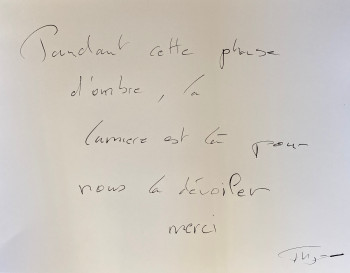 Pandant cette phase
d'ombre, la
lumiere est là pour
nous la dévoiler
merci